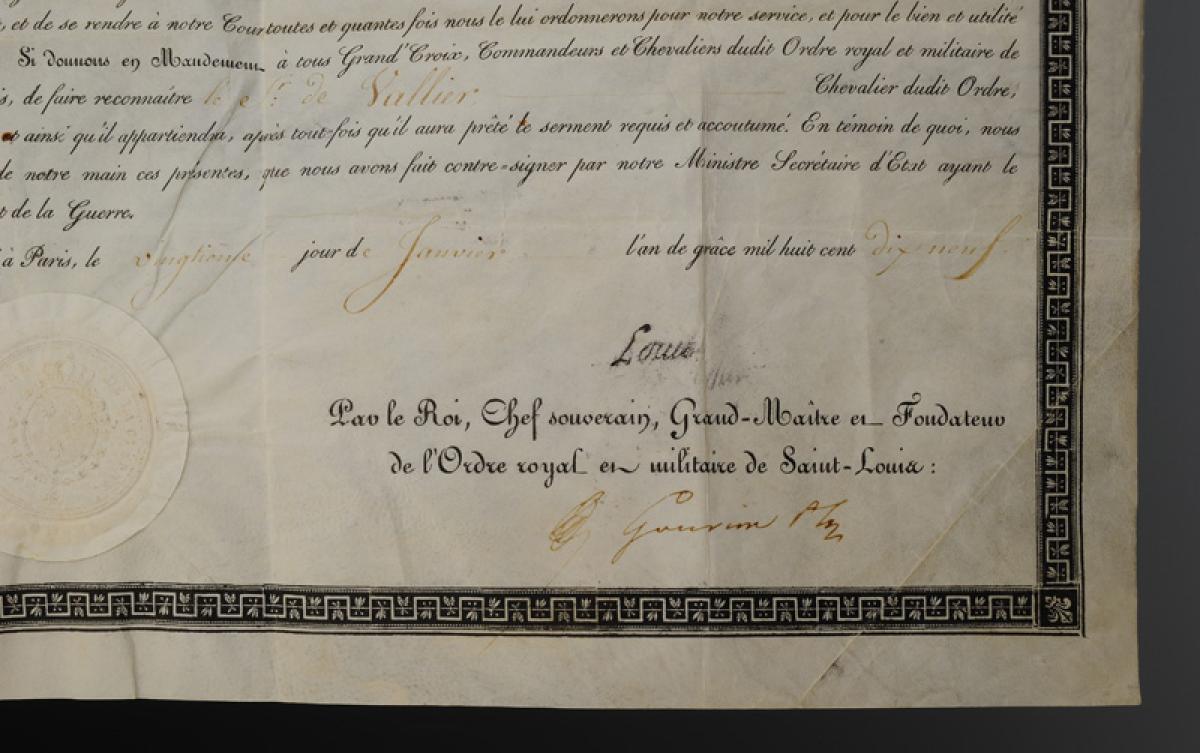 , et de se rendre à notre Cour toutes et quantes fois nous le lui ordonnerons pour notre service, et pour le bien et utilité
Si donnons en Mandement à tous Grand'Croix, Commandeurs et Chevaliers dudit Ordre royal et militaire de
is, de faire reconnaître le Sr. de Vallier Chevalier dudit Ordre,
et ainsi qu'il appartiendra, après tout-fois qu'il aura prêté le serment requis et accoutumé. En témoin de quoi, nous
de notre main ces présentes, que nous avons fait contre-signer par notre Ministre Secrétaire d'Etat ayant le
t de la Guerre.
à Paris, le jour de Janvier l'an de grâce mil huit cent dix neuf
Louis
Par le Roi, Chef souverain, Grand-Maître et Fondateur
de l'Ordre royal et militaire de Saint-Louis :
Gouvion